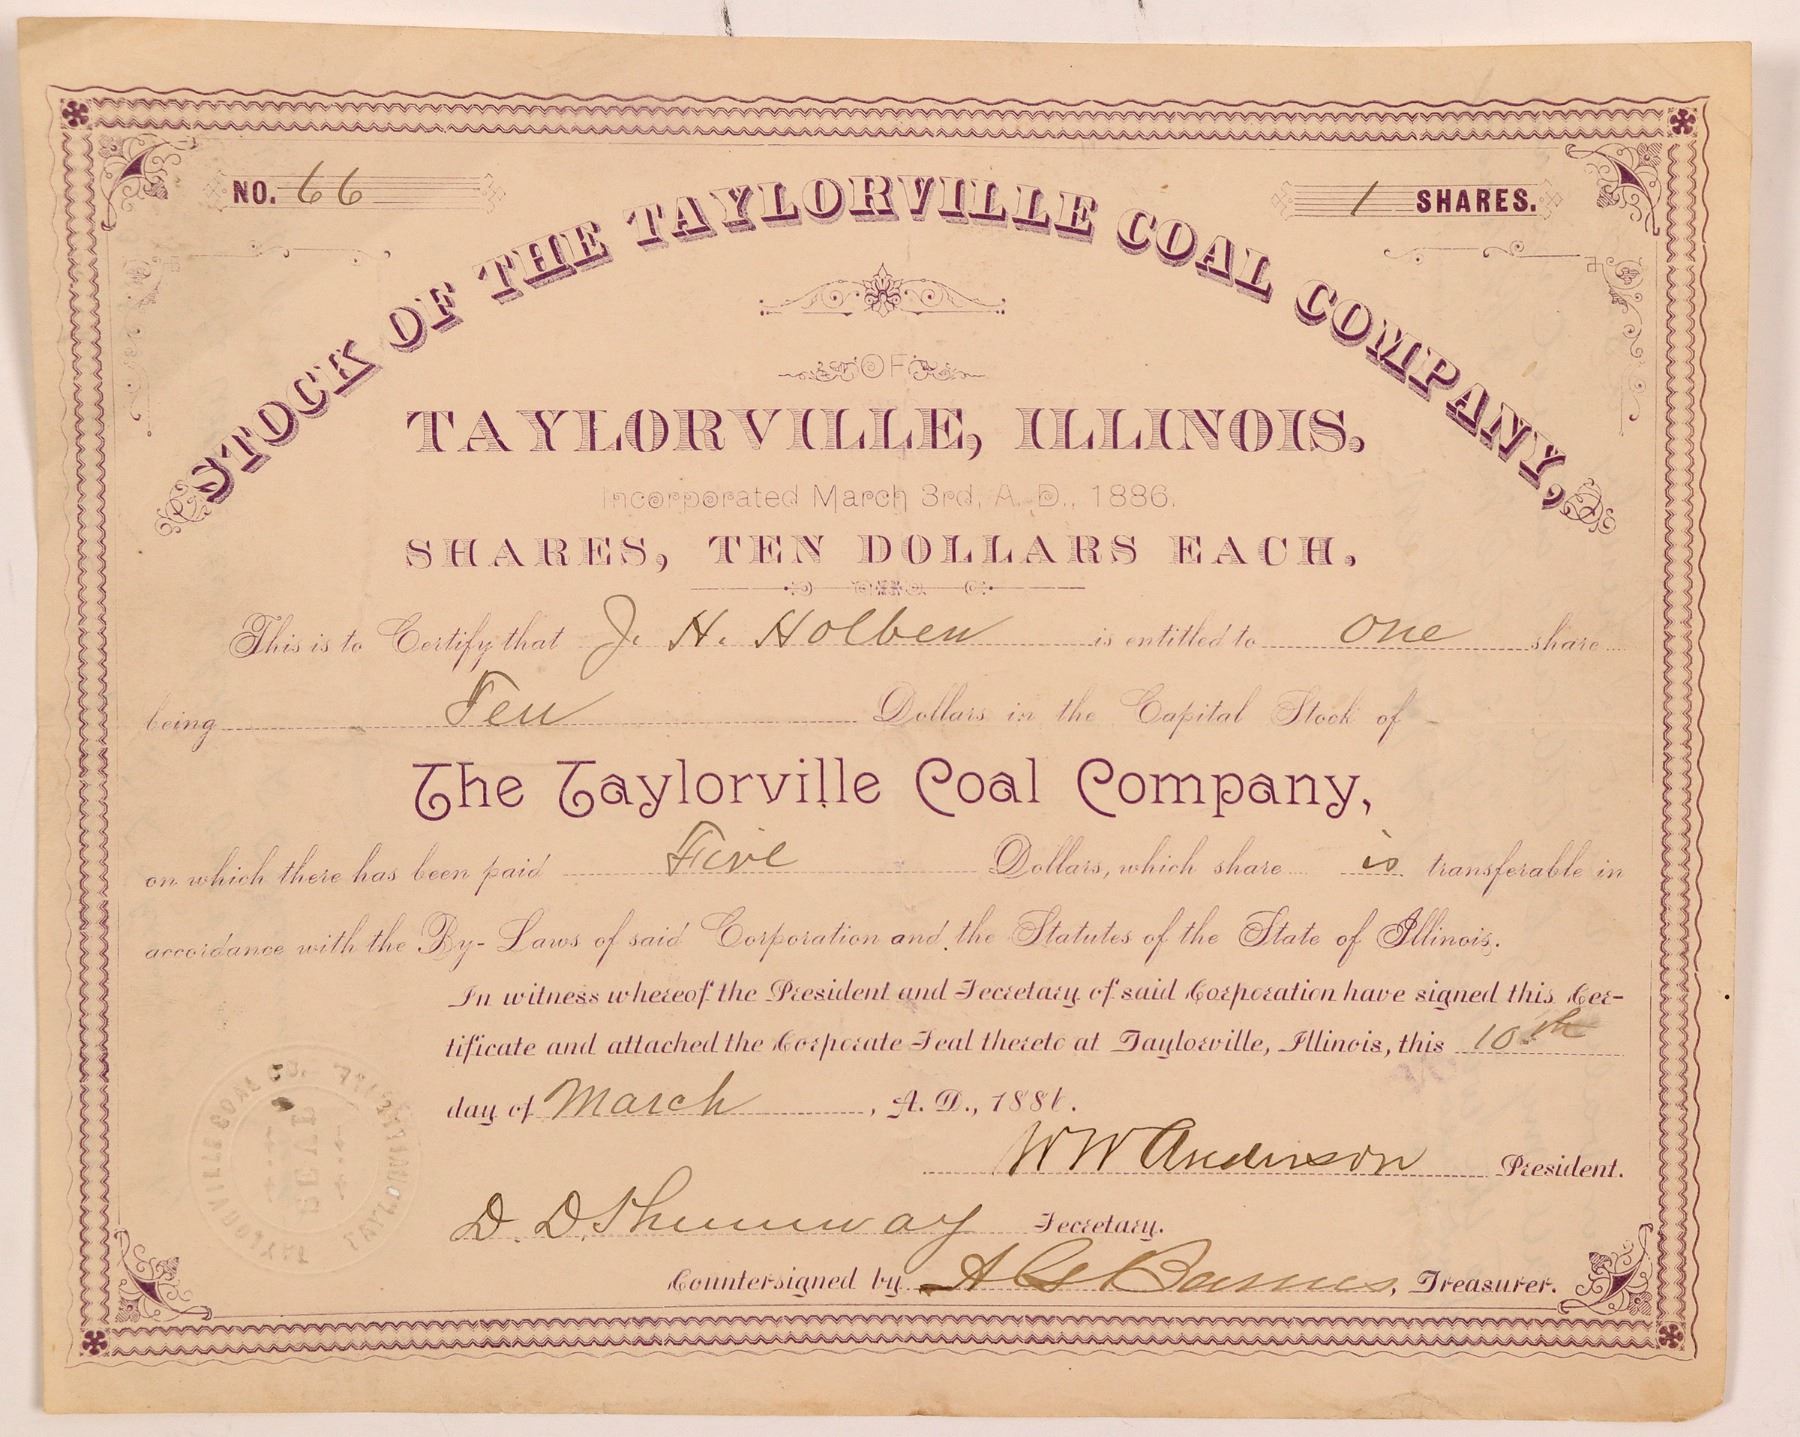 NO. 66
1 SHARES.
STOCK OF THE TAYLORVILLE COAL COMPANY,
OF
TAYLORVILLE, ILLINOIS.
Incorporated March 3rd, A. D., 1886.
SHARES, TEN DOLLARS EACH.
This is to Certify that J. H. Holben is entitled to one share
being Ten Dollars in the Capital Stock of
The Taylorville Coal Company,
on which there has been paid Five Dollars, which share is transferable in
accordance with the By-Laws of said Corporation and the Statutes of the State of Illinois.
In witness whereof the President and Secretary of said Corporation have signed this Cer-
tificate and attached the Corporate Seal thereto at Taylorville, Illinois, this 10th
day of March, A. D., 188
W W Anderson President.
D. D. Shumway Secretary.
Countersigned by A G Barnes, Treasurer.
TAYLORVILLE COAL CO.
SEAL